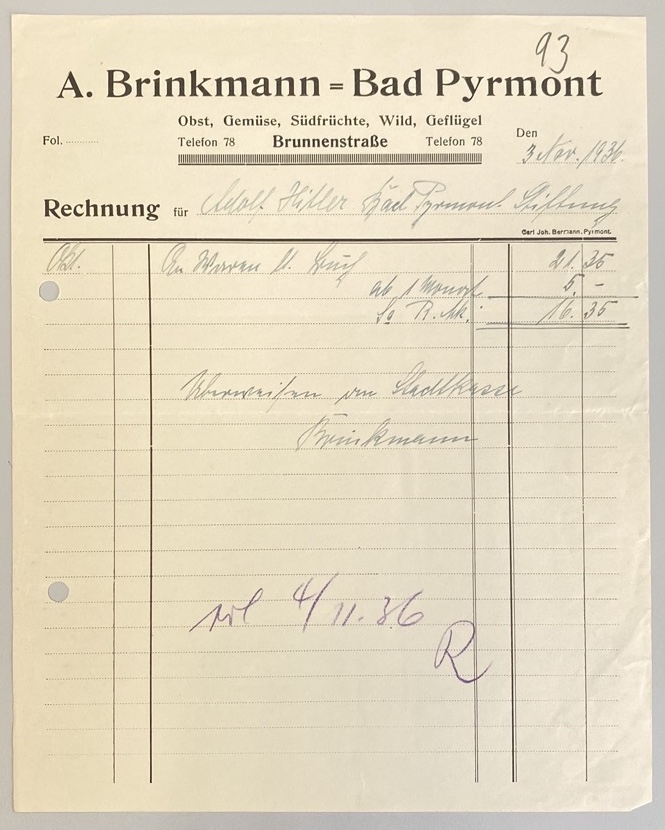 93
A. Brinkmann = Bad Pyrmont
Obst, Gemüse, Südfrüchte, Wild, Geflügel
Fol. Telefon 78 Brunnenstraße Telefon 78 Den
3 Nov. 1936.
Rechnung für Adolf Hitler Bad Pyrmont Stiftung
Carl Joh. Bermann, Pyrmont.
Okt. An Waren 21.35
ab 5.-
R.Mk. 16.35
Überweisen an Stadtkasse
Brinkmann
4/11.36
R